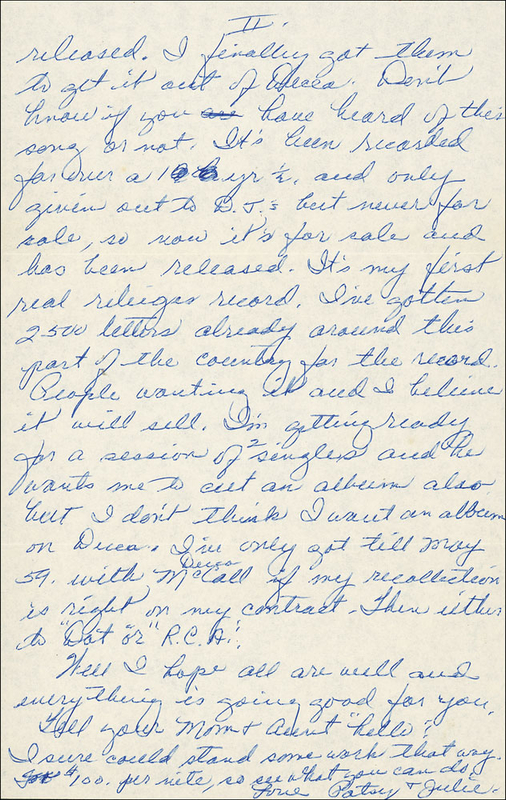 II.
released. I finally got them
to get it out of Decca. Don't
know if you have heard of this
song or not. It's been recorded
for over a 1 yr ½, and only
given out to D.J.s but never for
sale, so now it's for sale and
has been released. It's my first
real releigas record. I've gotten
2500 letters already around this
part of the country for the record.
People wanting it and I believe
it will sell. I'm getting ready
for a session of 2 singles and he
wants me to cut an album also
but I don't think I want an album
on Decca. I've only got till May
59. with Decca McCall if my recollection
is right on my contract. Then either
to "Dot" or "R.C.A."
Well I hope all are well and
everything is going good for you.
Tell your Mom & Aunt "hello".
I sure could stand some work that way.
$100. per nite, so see what you can do.
Love Patsy & Julie.